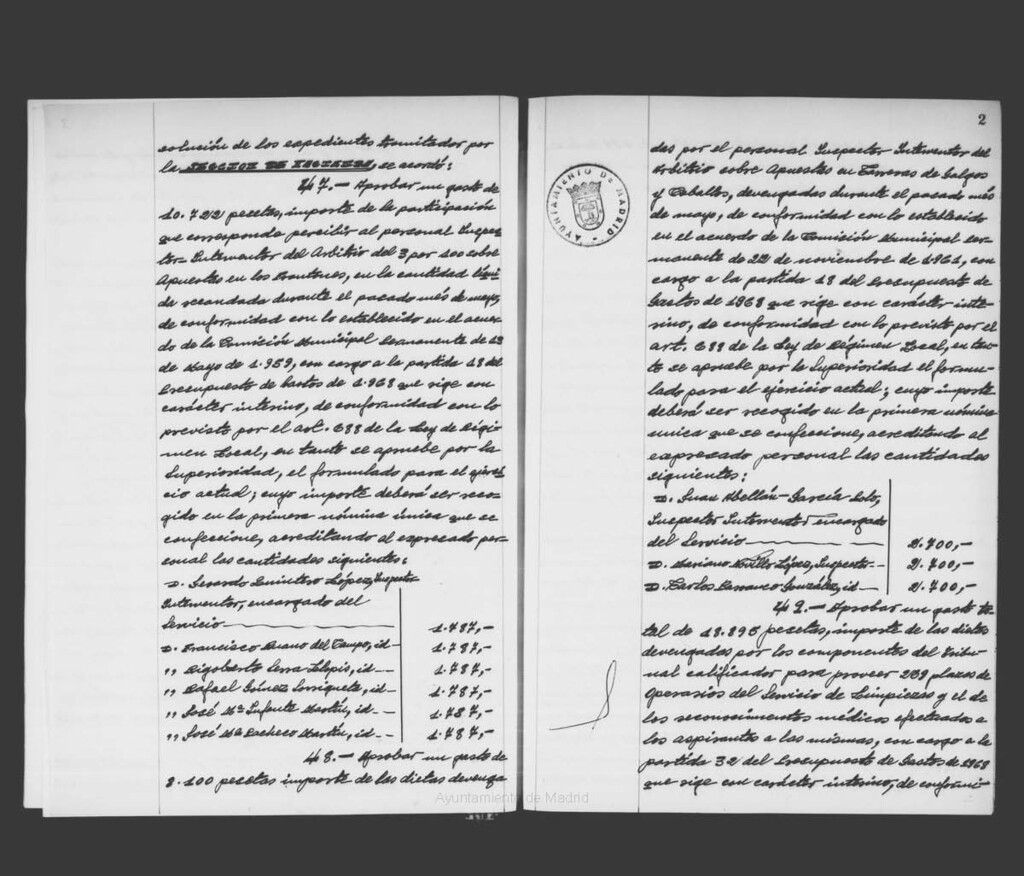 solución de los expedientes tramitados por
la SECCION DE HACIENDA, se acordó:
47.— Aprobar un gasto de
10.722 pesetas, importe de la participación
que corresponde percibir al personal Inspec-
tor-Interventor del Arbitrio del 3 por 100 sobre
Apuestas en los Frontones, en la cantidad líqui-
da recaudada durante el pasado mes de mayo,
de conformidad con lo establecido en el acuer-
do de la Comisión Municipal Permanente de 13
de Mayo de 1.959, con cargo a la partida 18 del
Presupuesto de Gastos de 1.968 que rige con
carácter interino, de conformidad con lo
previsto por el art. 688 de la Ley de Régi-
men Local, en tanto se apruebe por la
Superioridad, el formulado para el ejerci-
cio actual; cuyo importe deberá ser reco-
gido en la primera nómina única que se
confeccione, acreditando al expresado per-
sonal las cantidades siguientes:
D. Gerardo Quintero López, Inspector
Interventor, encargado del
Servicio 1.787,-
D. Francisco Ruano del Campo, id 1.787,-
,, Rigoberto Serra Llopis, id 1.787,-
,, Rafael Gómez id 1.787,-
,, José Mª Infante Martín, id 1.787,-
,, José Mª Pacheco Martín, id 1.787,-
48.— Aprobar un gasto de
8.100 pesetas importe de las dietas devenga
2
das por el personal Inspector Interventor del
Arbitrio sobre Apuestas en Carreras de Galgos
y Caballos, devengadas durante el pasado mes
de mayo, de conformidad con lo establecido
en el acuerdo de la Comisión Municipal Per-
manente de 22 de noviembre de 1961, con
cargo a la partida 18 del Presupuesto de
Gastos de 1968 que rige con carácter inte-
rino, de conformidad con lo previsto por el
art. 688 de la Ley de Régimen Local, en tan-
to se apruebe por la Superioridad el formu-
lado para el ejercicio actual; cuyo importe
deberá ser recogido en la primera nómina
única que se confeccione, acreditando al
expresado personal las cantidades
siguientes:
D. Juan Abellán-García Polo,
Inspector Interventor encargado
del Servicio 2.700,-
D. Mariano López, Inspector 2.700,-
D. Carlos Carrasco González, id 2.700,-
49.— Aprobar un gasto to-
tal de 18.895 pesetas, importe de las dietas
devengadas por los componentes del Tribu-
nal calificador para proveer 239 plazas de
Operarios del Servicio de Limpiezas y el de
los reconocimientos médicos efectuados a
los aspirantes a las mismas, con cargo a la
partida 32 del Presupuesto de Gastos de 1968
que rige con carácter interino, de conformi-
AYUNTAMIENTO DE MADRID
Ayuntamiento de Madrid